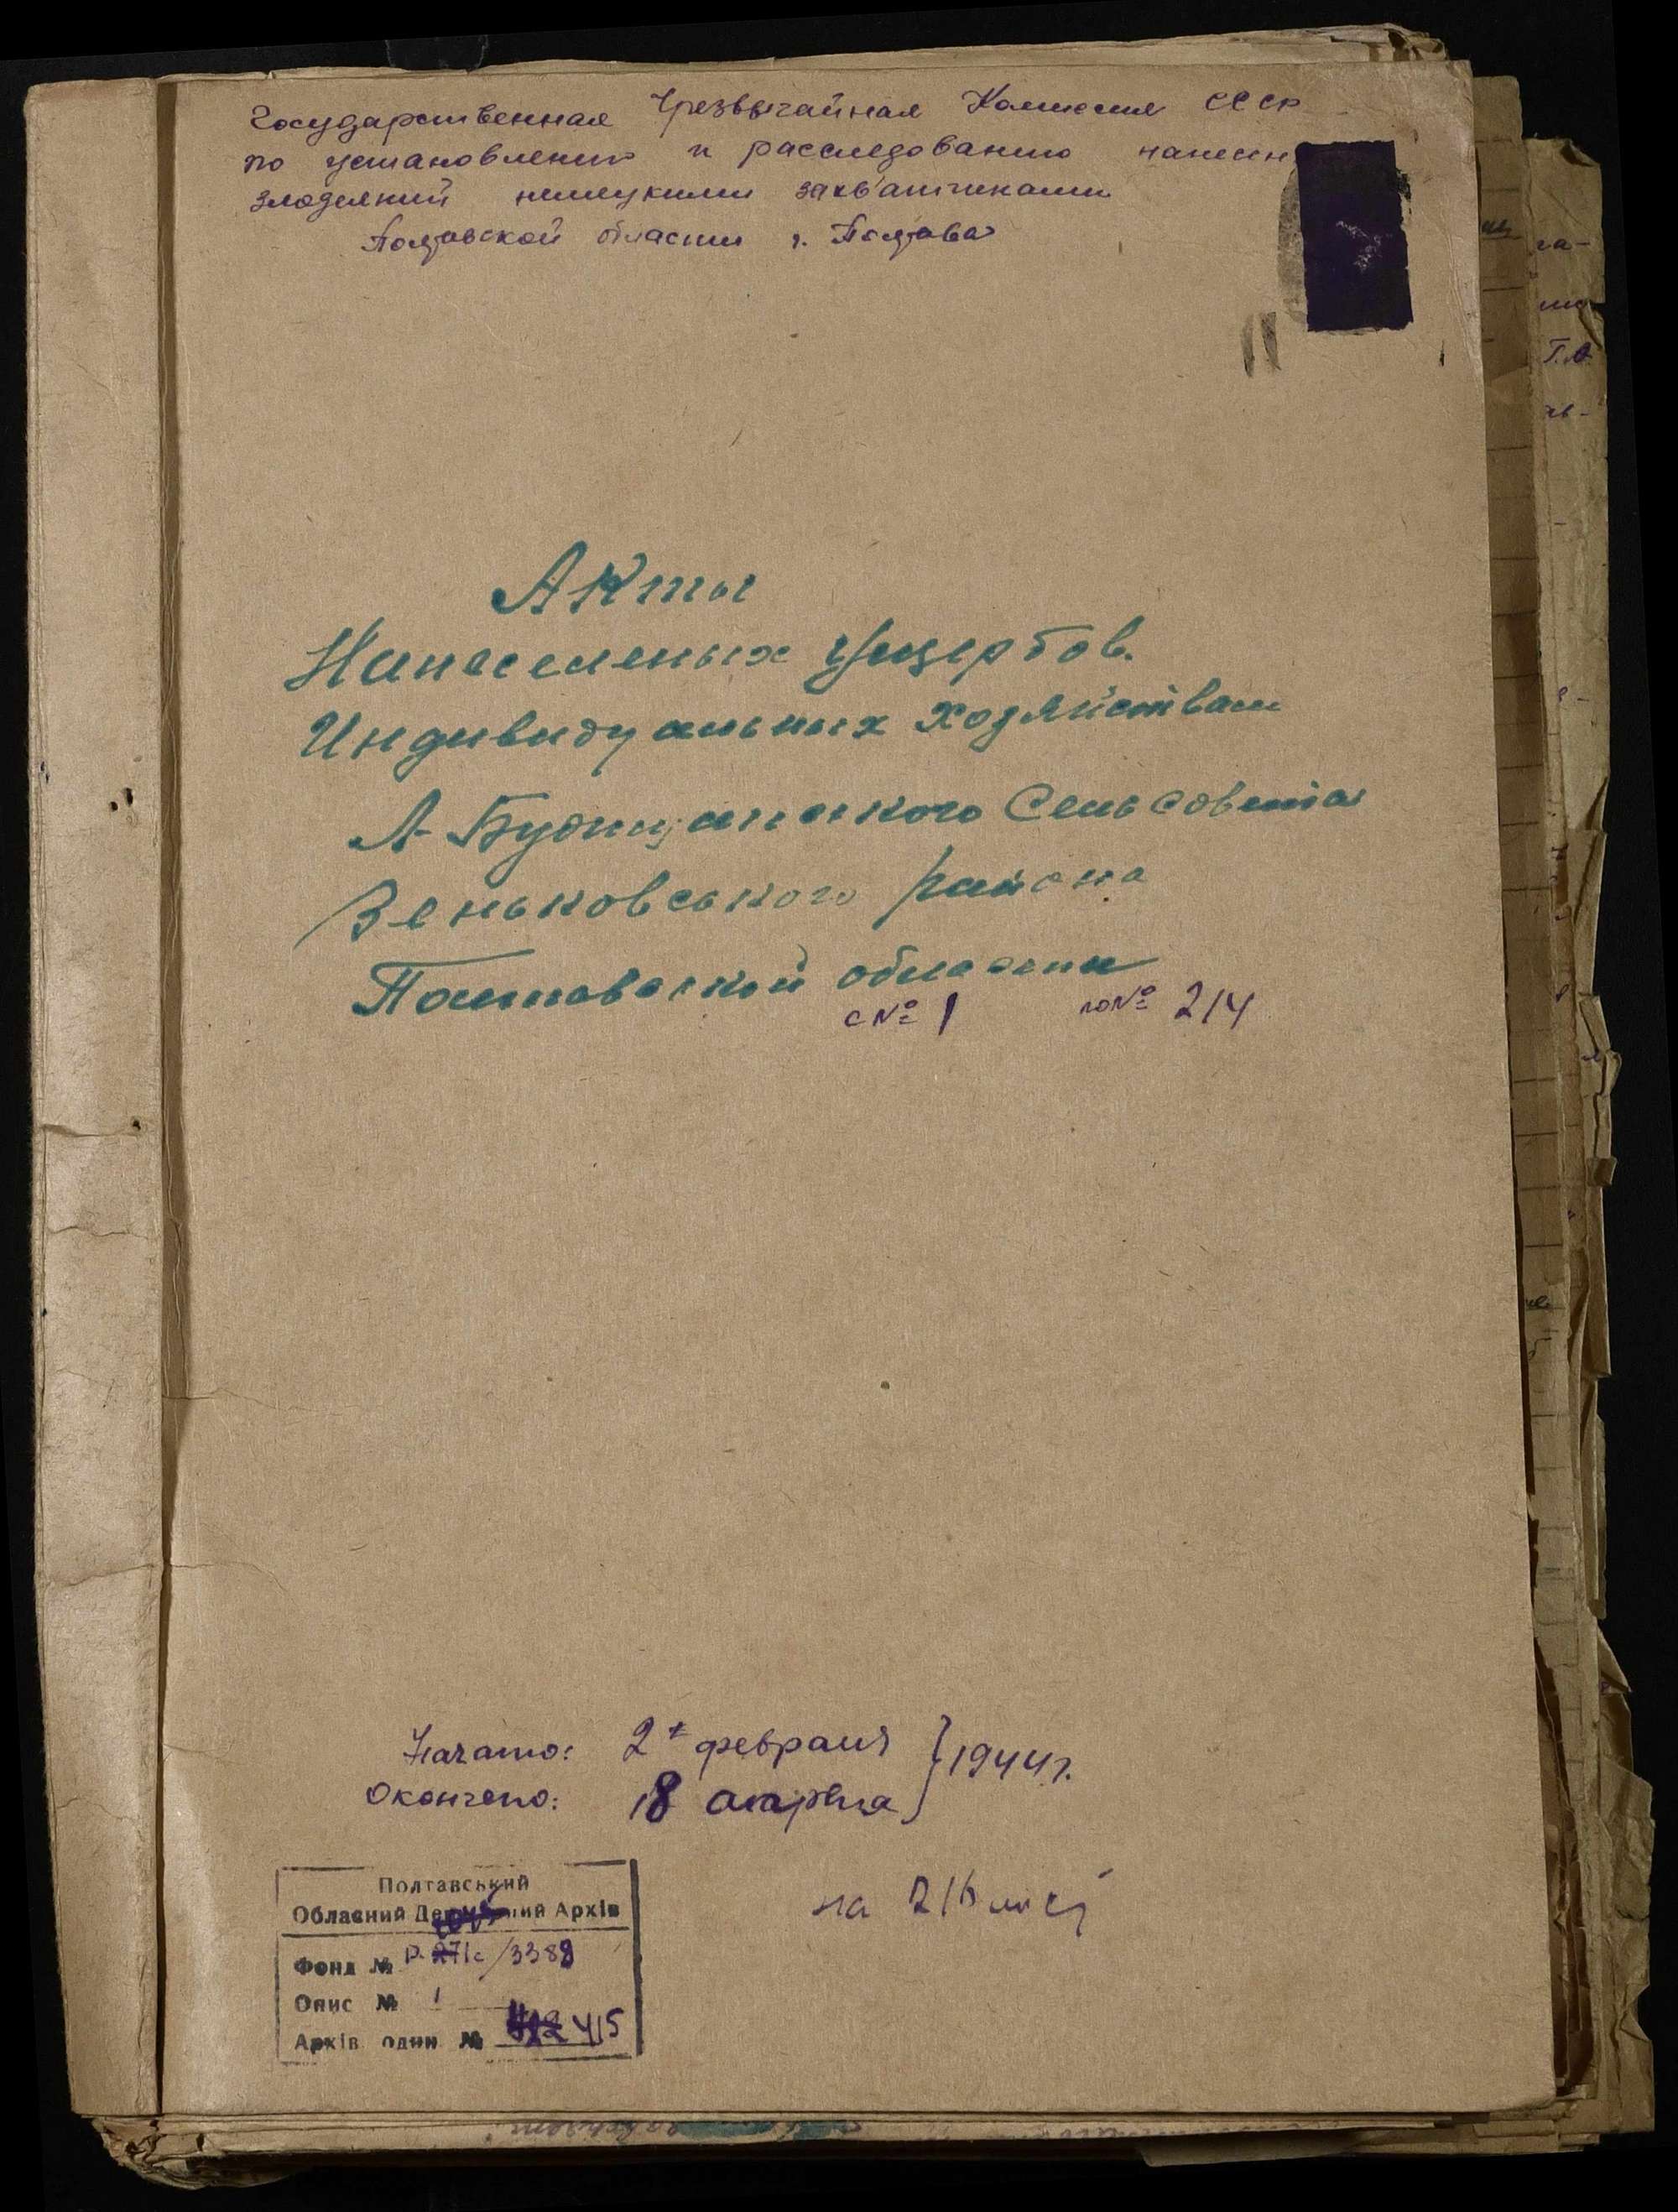 Государственная Чрезвычайная Комиссия СССР
по установлению и расследованию нанесен
злодеяний немецкими захватчиками
Полтавской области г. Полтава
Акты
Нанеселеных Ущербов.
Индивидуальных Хозяйствам
А-Будищанского Сельсовета
Зеньковського района
Полтавской области
с № 1 по № 214
Начато: 2 февраля } 1944 г.
Окончено: 18 апреля
на 216
Полтавський
Обласний Державний Архів
Фонд № Р. 3388
Опис № 1
Архів один № 415